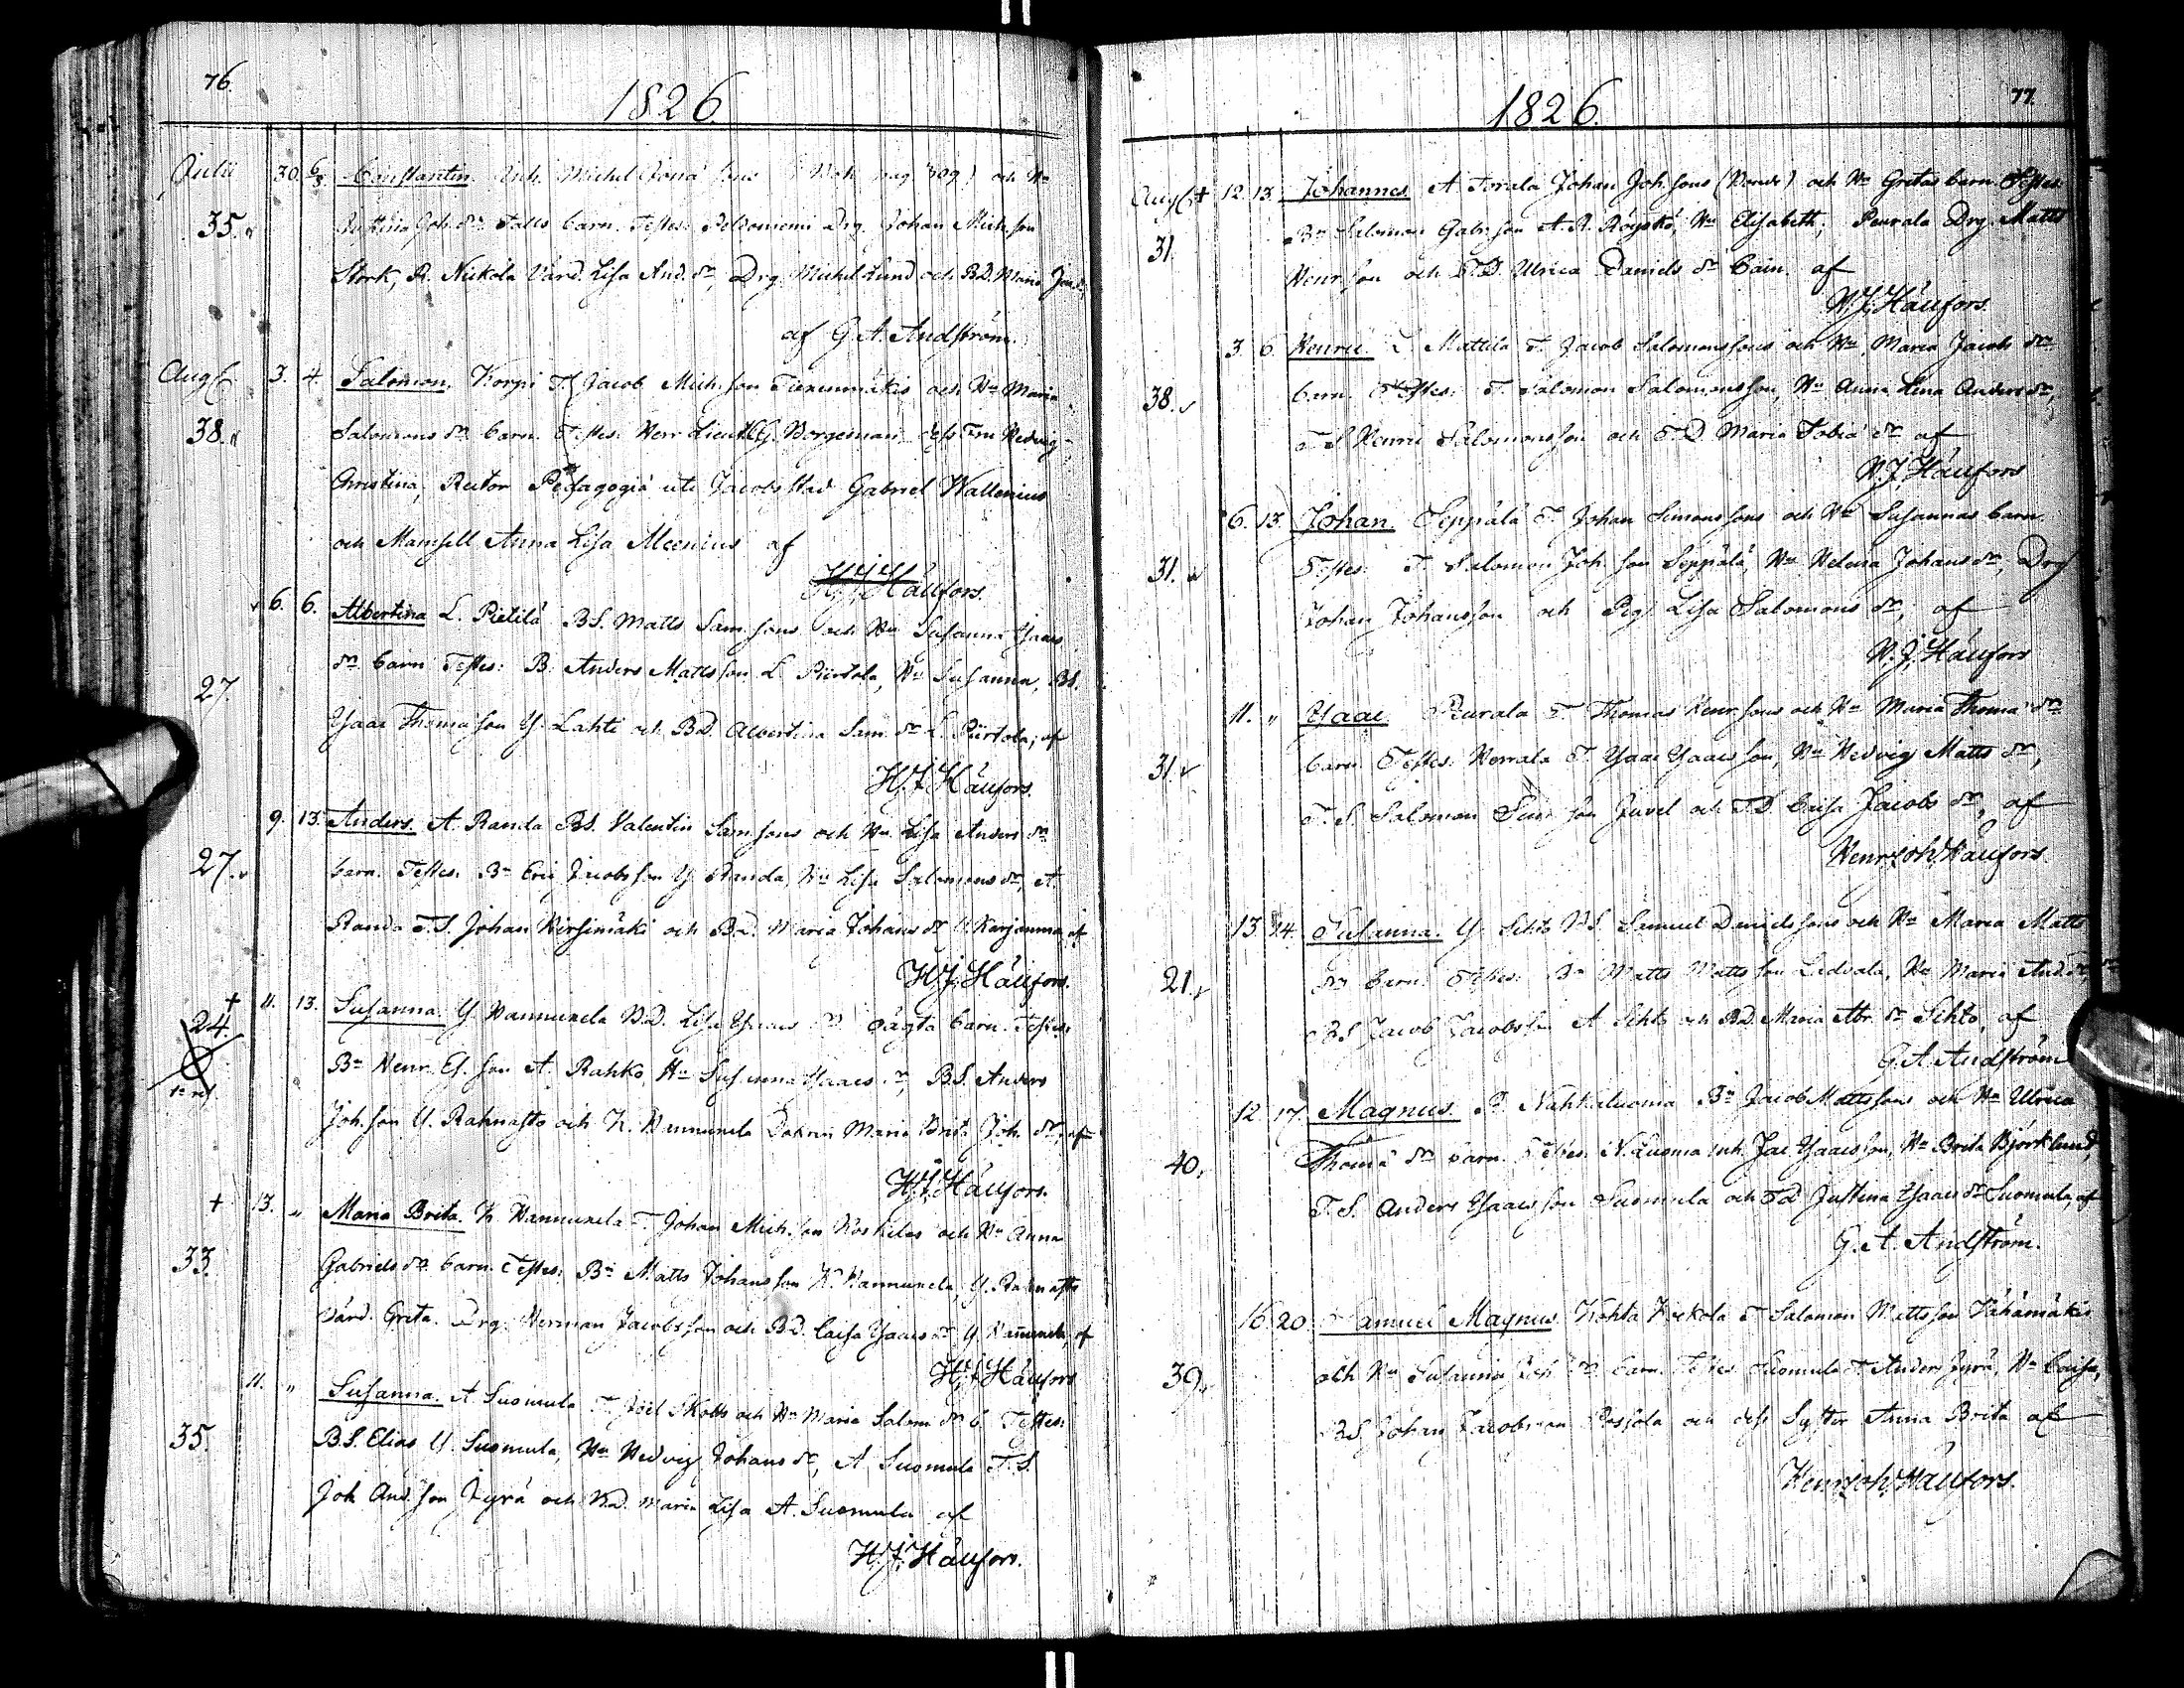 76.
1826.
Julii 30. 6/8. Constantin. Inh. Michel Jona sons och Hu
35. Justina Joh. dr barn. Testes: Peldoniemi Drg. Johan Mich. son
Stork, R. Niskola Värd. Lisa And. dr, Drg. Michel Lund och BD. Maria
af G. A. Andström.
Aug. 3. 4. Salomon. Korpi T. Jacob Mich. son och Hu Maria
38. Salomons dr barn. Testes: Herr Lieut. C. G. Borgeman dess Fru Hedvig
Christina, Rector Pedagogiä uti Jacobstad Gabriel Wallenius
och Mamsell Anna Lisa af
H. J. Häufors.
6. 6. Albertina L. Pietilä BS. Matts Sam. sons och Hu Susanna Isaacs
27. dr barn Testes: B. Anders Matts son L. Piirtola, Hu Susanna, BS.
Isaac Thomä son Y. Lahti och BD. Albertina Sam. dr L. Piirtola; af
H. J. Häufors.
9. 13. Anders. A. Randa BS. Valentin Sam. sons och Hu Lisa Anders dr
27. barn. Testes: Bn Eric Jacobs son Y. Randa, Hu Lisa Salomons dr, A.
Randa T.S. Johan Hirsimäki och BD. Maria Johans dr Y. Karjanmaa af
H. J. Häufors.
+ 11. 13. Susanna. Y. Hannunela BD. Lisa Isaacs dr oägta barn. Testes:
24. Bn Henr. Es. son A. Rahko, Hu Susanna Isaacs dr, BS. Anders
Joh. son Y. Rahnasto och K. Hannunela Maria Brita Joh. dr, af
H. J. Häufors.
+ 13. " Maria Brita. K. Hannunela T. Johan Mich. son Koskelas och Hu Anna
33. Gabriels dr barn. Testes: Bn Matts Johans son K. Hannunela, Y. Rahnasto
Värd. Greta. Drg. Herman Jacobs son och BD. Caisa Isaacs dr Y. Hannunela, af
H. J. Häufors
11. " Susanna. A. Suomula T. Joël Skotts och Hu Maria Salom. dr b. Testes:
35. B.S. Elias Y. Suomula, Hu Hedvig Johans dr, A. Suomula T.S.
Joh. And. son Jyrä och BD. Maria Lisa A. Suomula af
H. J. Häufors.
77.
1826.
Aug. + 12. 13. Johannes. A. Torala Johan Joh. sons och Hu Gretas barn Testes:
31. Bn Salomon Gabr. son A. R. Röyskö, Hu Elisabeth; Peurala Drg. Matts
Henr. son och T.D. Ulrica Daniels dr Cain. af
H. J. Häufors.
3. 6. Henric. L. Mattila T. Jacob Salomonssons och Hu Maria Jacobs dr
38. barn. Testes: T. Salomon Salomonsson, Hu Anna Lena Anders dr,
T.S. Henric Salomonsson och T.D. Maria Tobiä dr af
H. J. Häufors
6. 13. Johan. Seppälä T. Johan Simonssons och Hu Susannas barn.
31. Testes: T. Salomon Joh. son Seppälä, Hu Helena Johans dr, Drg.
Johan Johansson och Pig. Lisa Salomons dr, af
H. J. Häufors
11. " Isaac. Peurala T. Thomas Henr. sons och Hu Maria Thomä dr
31. barn. Testes: Herrala T. Isaac Isaacs son, Hu Hedvig Matts dr,
T.S. Salomon son Juvel och T.D. Caisa Jacobs dr, af
Henr. Joh. Häufors.
13. 14. Susanna. Y. Sihto BS. Samuel Daniels sons och Hu Maria Matts
21. dr barn. Testes: Bn Matts Matts son Ledvala, Hu Maria And. dr,
BS. Jacob Jacobs son A. Sihto och BD. Maria Abr. dr Sihto, af
G. A. Andström
12. 17. Magnus. P. Nahkaluoma Bn Jacob Matts sons och Hu Ulrica
40. Thomä dr barn. Testes: N. Luoma inh. Jac. Isaacs son, Hu Brita Björklund,
T.S. Anders Isaacs son Suomula och T.D. Justina Isaacs dr Suomula, af
G. A. Andström.
16. 20. Samuel Magnus. Kohta T. Salomon Matts son
39. och Hu Susanna Joh. dr barn. Testes: Suomula T. Anders Jyrä, Hu Caisa,
BS. Johan Jacobs son Passola och dess Syster Anna Brita af
Henr. Joh. Häufors.